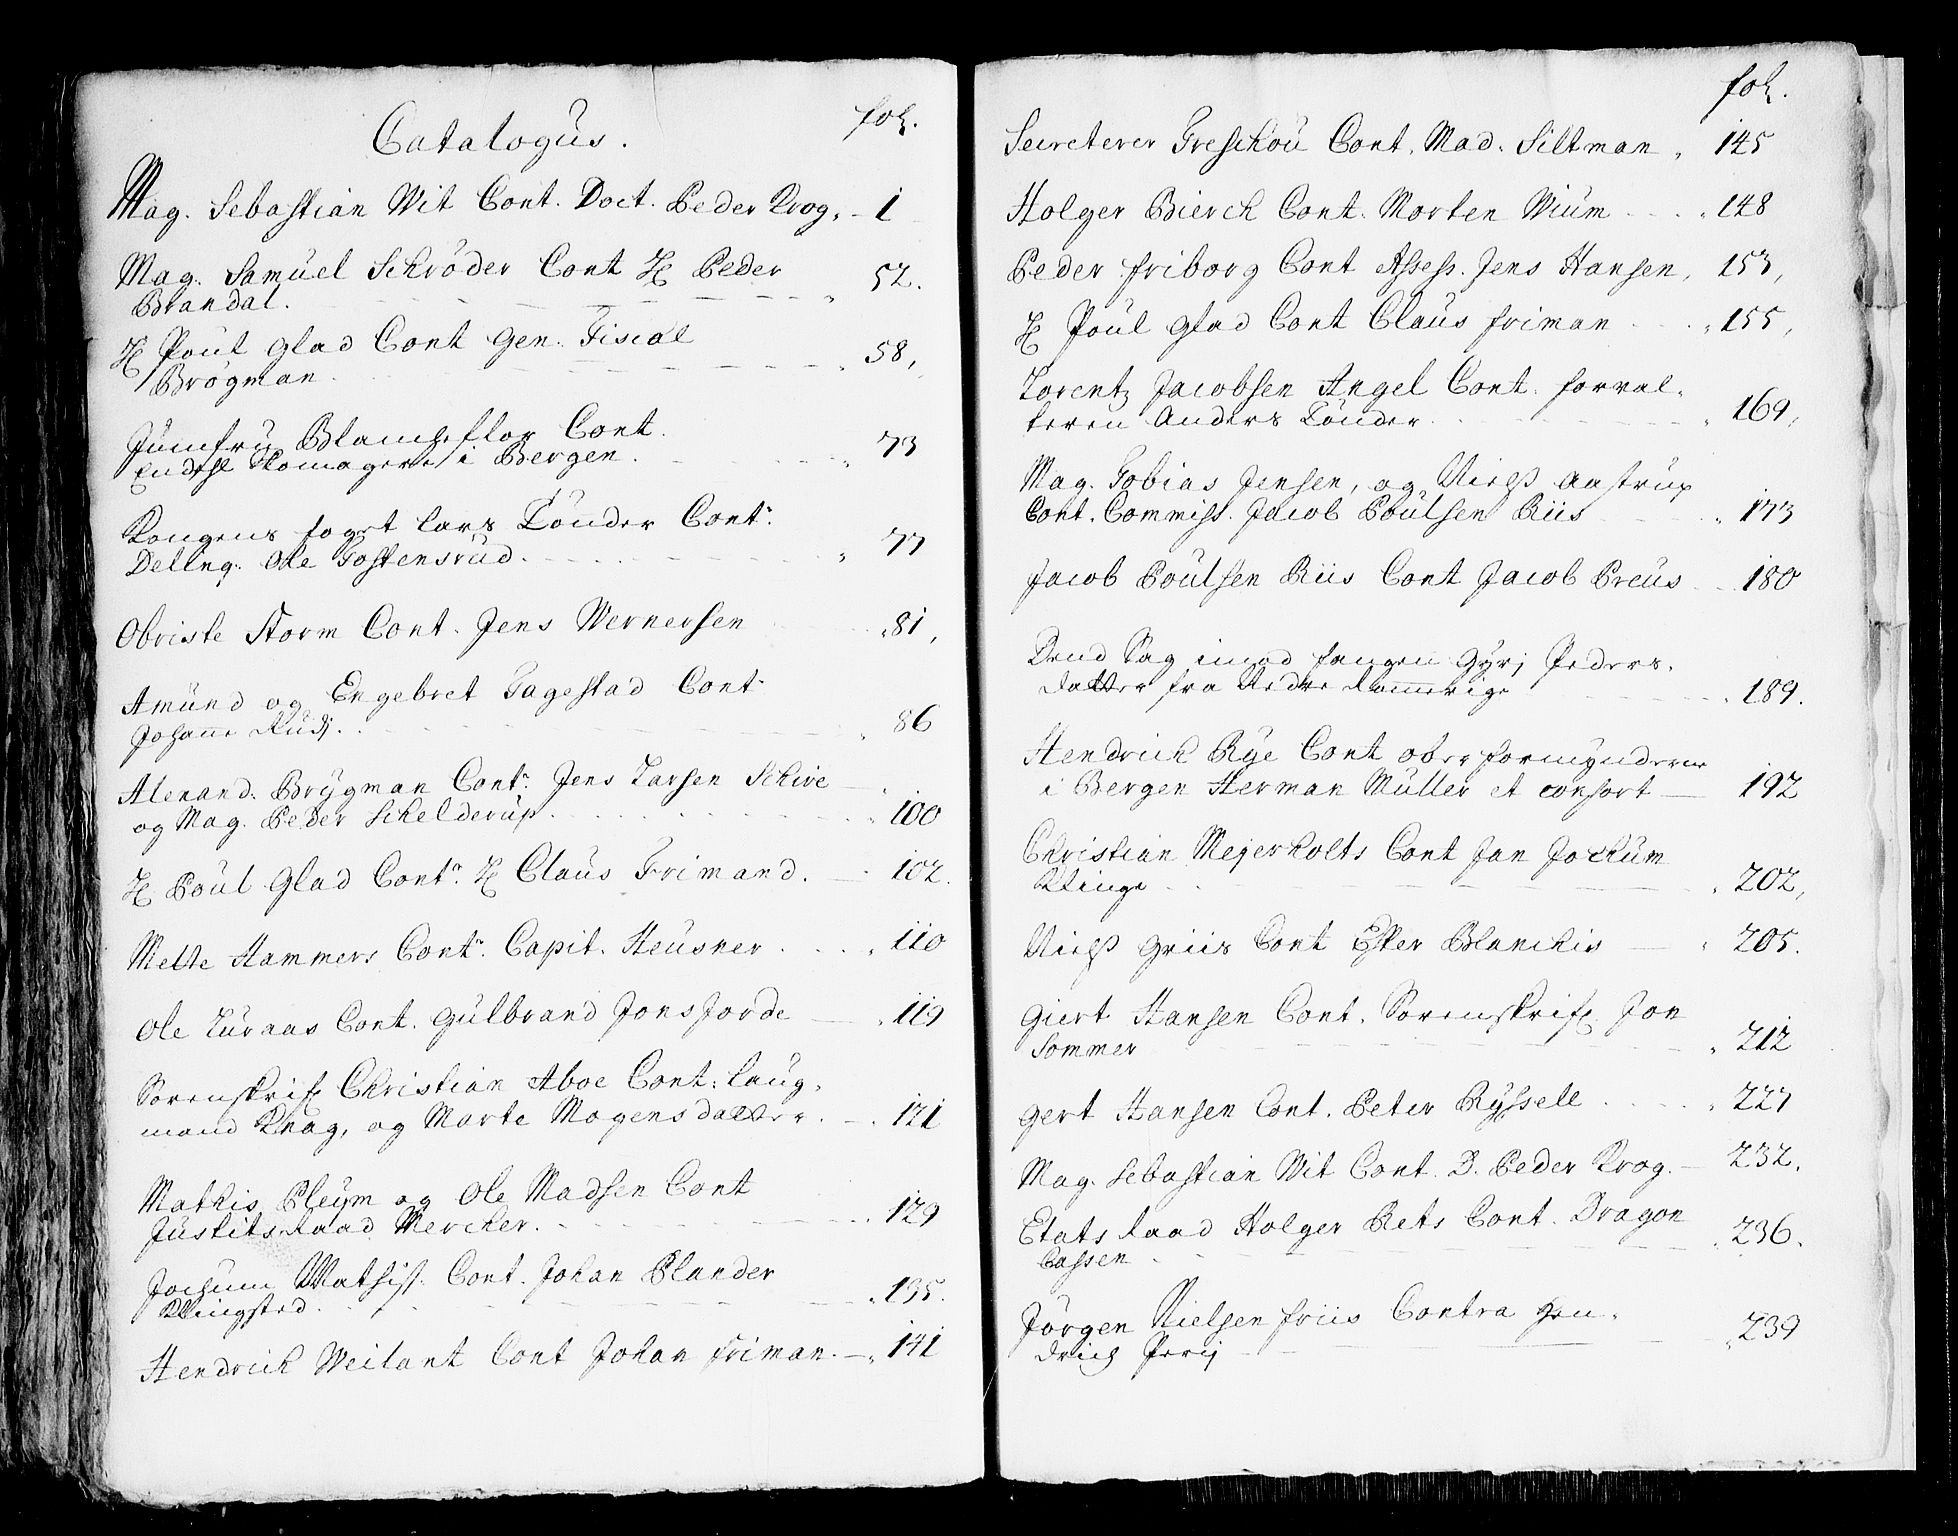 Catalogus. fol.
Mag. Sebastian Wit Cont. Doct. Peder Krog. - 1
Mag. Samuel Schrøder Cont H Peder
Brandal. 52.
H Poul Glad Cont Gen. Fiscal
Brøgman 58,
Jumfru Blancheflor Cont.
Endehl Skomagere i Bergen. 73
Kongens foget Lars Tønder Contr.
Dellnq. Ole Tostensrud. 77
Obriste Storm Cont. Jens Wernersen 81,
Amund og Engebret Tagestad Cont
Johanne Rudj. 86
Alexand. Brygman Contr. Jens Larsen Schive
og Mag. Peder Schelderup. 100
H Poul Glad Contr. H Claus Frimand. 102.
Mette Hammers Contr. Capit. Heusner 110
Ole Luraas Cont. Gulbrand Jonsjorde 119
Sorenskrif. Christian Aboe Cont. Laug-
mand Knag, og Marte Mogensdatter. 121
Mathis Pleym og Ole Madsen Cont
Justits Raad Mercker. 129
Jochum Mathiss. Cont. Johan Plander
Klingsted. 135.
Hendrich Weilant Cont Johan friman. 141
fol.
Secreterer Treschou Cont. Mad. Siltman 145
Holger Bierch Cont. Morten Wium 148
Peder friborg Cont Assess. Jens Hansen, 153,
H Poul Glad Cont Claus friman 155,
Lorentz Jacobsen Angel Cont. forval-
teren Anders Tønder 169,
Mag. Tobias Jensen, og Niels Aastrup
Cont. Commiss. Jacob Poulsen Riis 173
Jacob Poulsen Riis Cont Jacob Preus 180
Dend Sag imod fangen Gyrj Peders-
datter fra Nedre Rommerige 189.
Hendrich Rye Cont oberformynderne
i Bergen Herman Müller et consort 192
Christian Mejerholts Cont Jan Jochum
Klinge 202,
Niels Griis Cont Esper Blanchis 205.
Giert Hansen Cont. Sorenskrif. Jon
Sommer 212
Gert Hansen Cont. Peter Ryssell 227
Mag. Sebastian Wit Cont. D. Peder Krog. 232.
Etats Raad Holger Rets Cont. Dragon
Cassen 236.
Jørgen Nielsen friis Contra Hen-
drich Perij 239